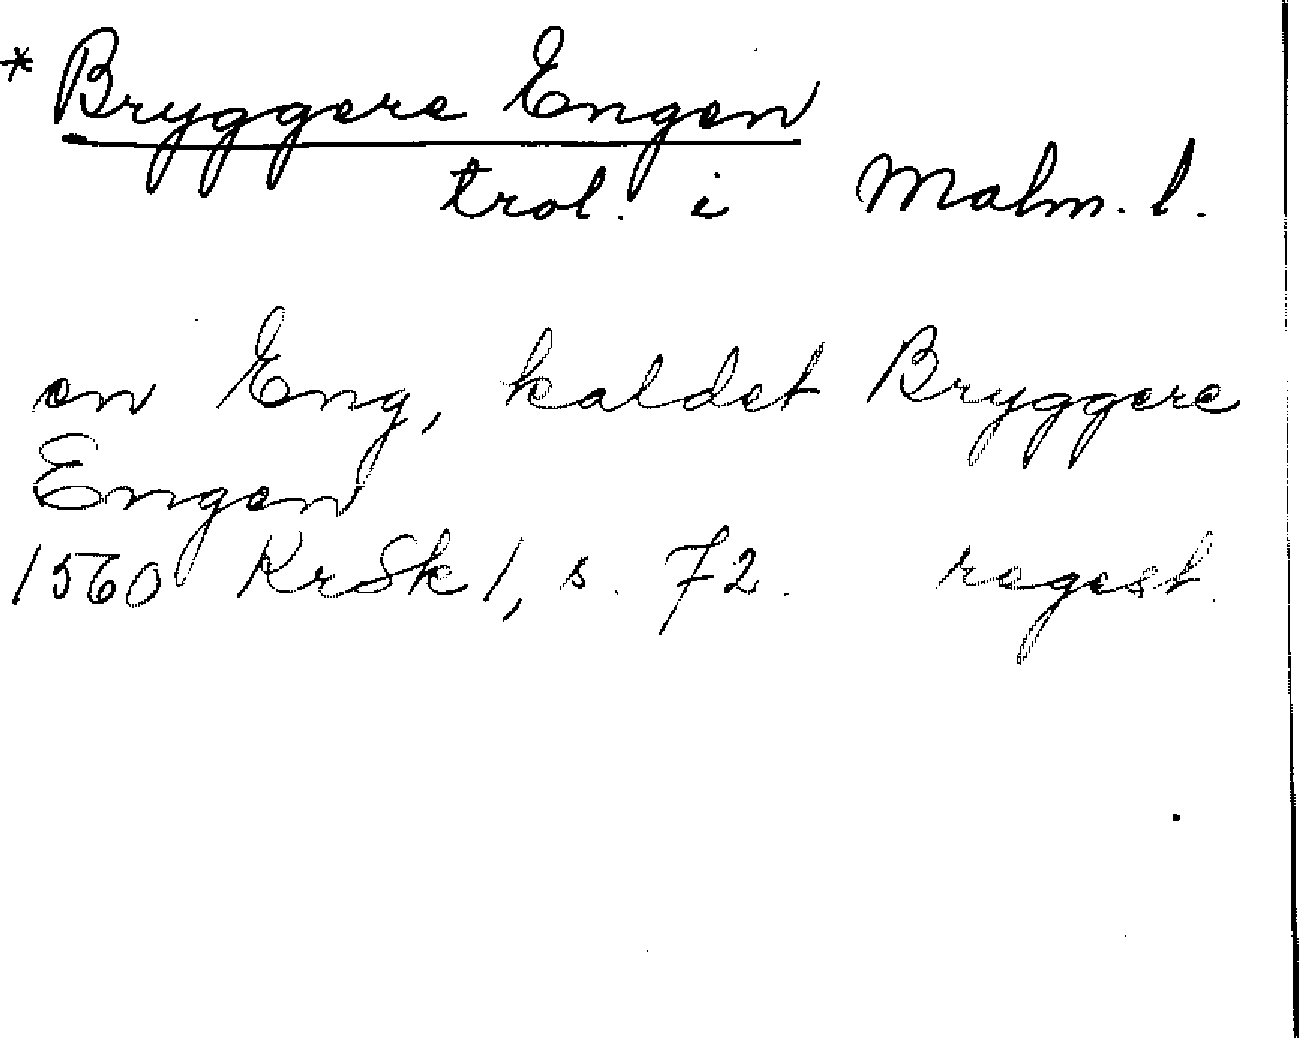 * Bryggere Engen
trol. i Malm. l.
en Eng, kaldet Bryggere
Engen
1560 KrSk 1, s. 72. regest.